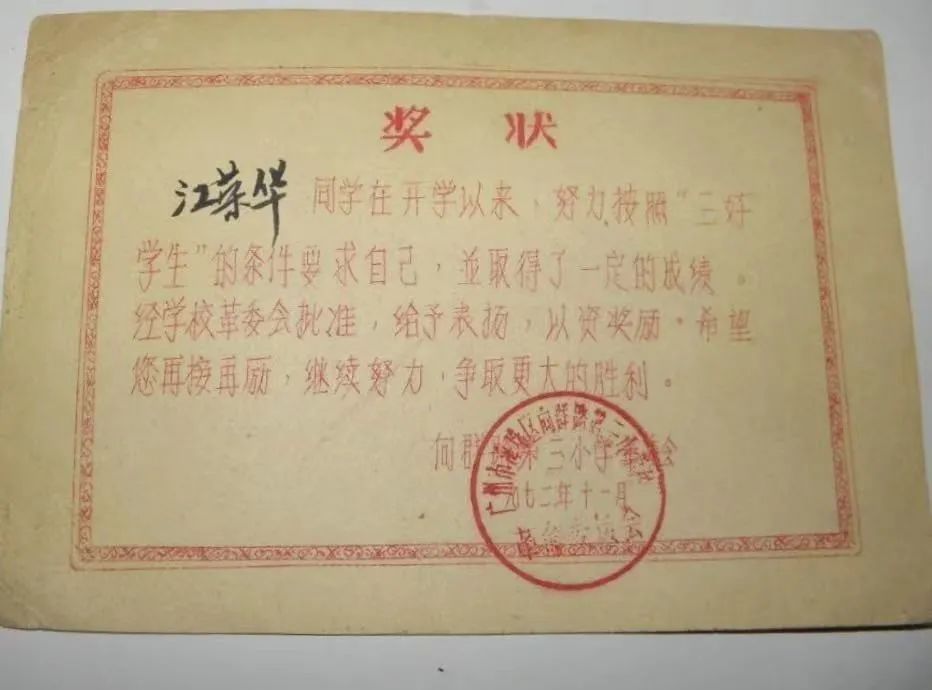 奖状
江荣华 同学在开学以来，努力按照“三好
学生”的条件要求自己，並取得了一定的成绩。
经学校革委会批准，给予表扬，以资奖励。希望
您再接再励，继续努力，争取更大的胜利。
向群路第三小学革委会
一九七二年十一月
广州市 区向群路第三小学校
革命委员会